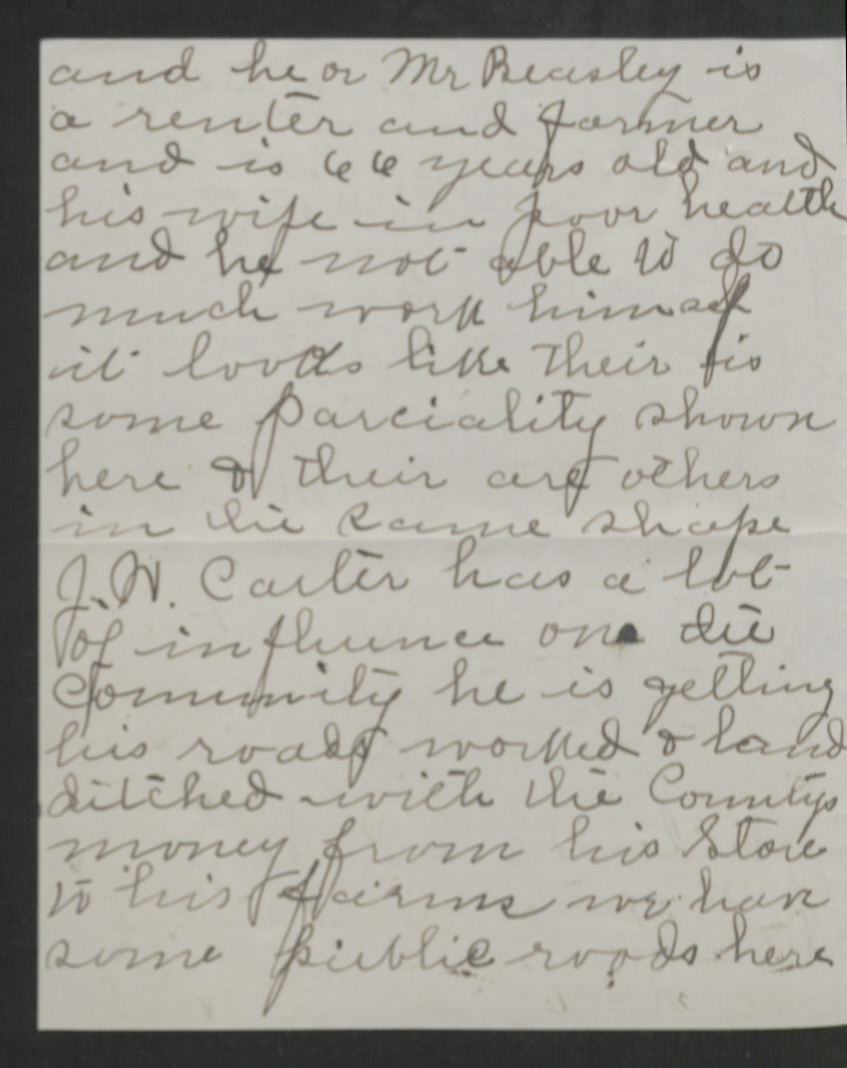 and he or Mr Beasley is
a renter and farmer
and is 66 years old and
his wife in poor health
and he not able to do
much work himself
it looks like their is
some parciality shown
here & their are others
in the same shape
J. W. Carter has a lot
of influence on the
Community he is getting
his roads worked & land
ditched with the Countys
money from his Store
to his farms we have
some public roads here